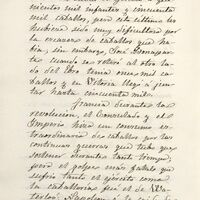 nientos mil infantes y cincuenta
mil caballos, pero esta última le
hubiera sido muy dificultosa por
la escasez de caballos que ha-
bía, sin embargo, José Bonaparte
cuando se retiró al otro la-
do del Ebro tenía once mil caba-
llos y en Vitoria llegó a jun-
tar hasta cincuenta mil.
Francia durante la
revolución, el Consulado y el
Imperio hizo un consumo ex-
traordinario de caballos por las
continuas guerras que tuvo que
sostener durante tanto tiempo;
pero el golpe más fatal que
sufrió tanto el ejército como
la caballería fué el de Wa-
terloo. Napoleón